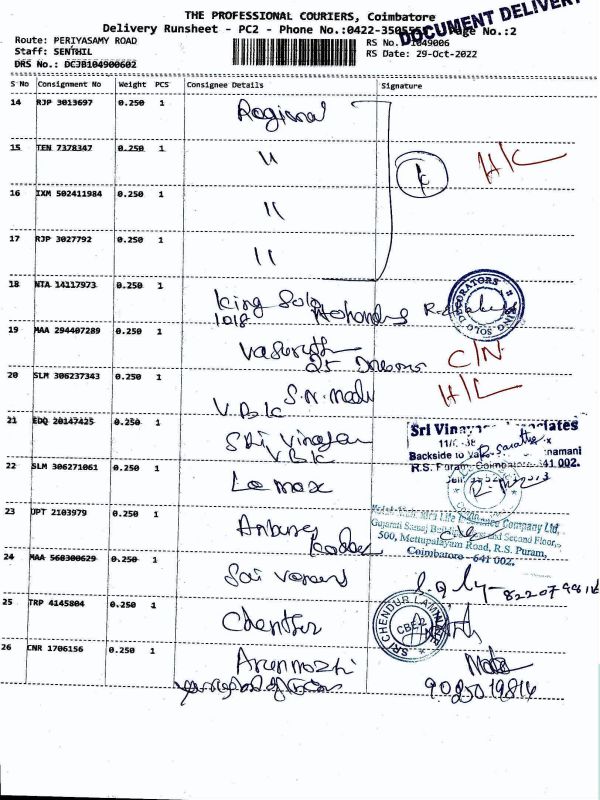 THE PROFESSIONAL COURIERS, Coimbatore
DOCUMENT DELIVERY
Delivery Runsheet - PC2 - Phone No.:0422-3505 Page No.:2
Route: PERIYASAMY ROAD
RS No.: 1049006
Staff: SENTHIL
RS Date: 29-Oct-2022
DRS No.: DCJB104900602
S No Consignment No Weight PCS Consignee Details Signature
14 RJP 3013697 0.250 1 Regional
15 TEN 7378347 0.250 1 11 H/C
16 IXM 502411984 0.250 1 11
17 RJP 3027792 0.250 1 11
18 NTA 14117973 0.250 1 King Solo
1018
KING SOLO DECORATORS
19 MAA 294407289 0.250 1 Vasanth
25 C/N
20 SLM 306237343 0.250 1 S.N. H/L
V.B.K
21 EDQ 20147425 0.250 1 Sri Vinayaga
V.B.K
Sri Vinayaga Associates
Backside to
R.S. Puram, Coimbatore-641 002.
22 SLM 306271061 0.250 1 Lamax
23 UPT 2103979 0.250 1
Life Insurance Company Ltd,
Gujarati Samaj Building, and Second Floor,
500, Mettupalayam Road, R.S. Puram,
Coimbatore - 641 002.
24 MAA 560300629 0.250 1 Sai
25 TRP 4145804 0.250 1 Chenthur
SRI CHENDUR
CBE-2
26 CNR 1706156 0.250 1 Arunmozhi
9025019814